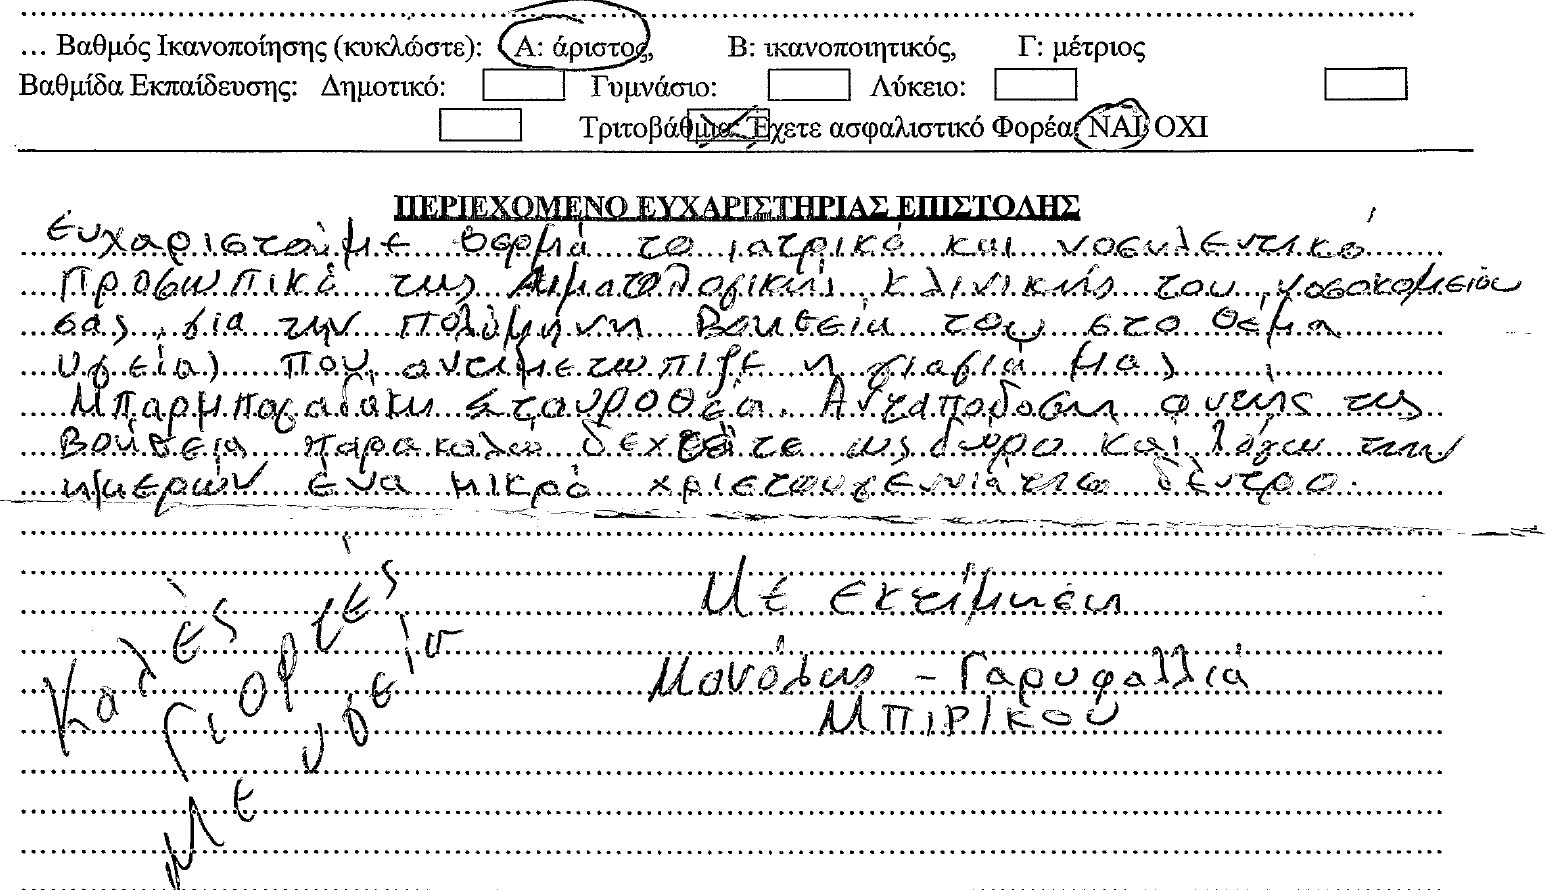 ... Βαθμός Ικανοποίησης (κυκλώστε): Α: άριστος, Β: ικανοποιητικός, Γ: μέτριος
Βαθμίδα Εκπαίδευσης: Δημοτικό: Γυμνάσιο: Λύκειο:
Τριτοβάθμια: Έχετε ασφαλιστικό Φορέα: ΝΑΙ, ΟΧΙ
ΠΕΡΙΕΧΟΜΕΝΟ ΕΥΧΑΡΙΣΤΗΡΙΑΣ ΕΠΙΣΤΟΛΗΣ
Ευχαριστούμε θερμά το ιατρικό και νοσηλευτικό
προσωπικό της Αιματολογικής κλινικής του νοσοκομείου
σας, για την πολύμηνη βοήθεια του στο θέμα
υγείας που αντιμετωπιζε η γιαγιά μας
Μπαρμπαγαδάκη Σταυροθέα. Ανταπόδοση αυτής της
βοήθειας παρακαλώ δεχθείτε ως δώρο και λόγω των
ημερών ένα μικρό χριστουγεννιάτικο δέντρο.
Με εκτίμηση
Μανόλης - Γαρυφαλλιά
ΜΠΙΡΙΚΟΥ
Καλές
Γιορτές
Με υγεία